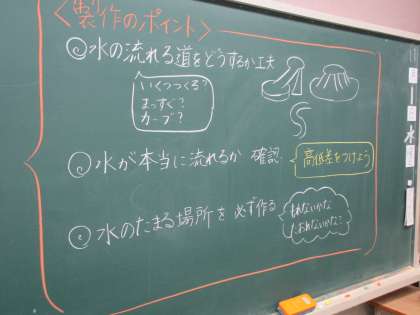 <製作のポイント>
◎水の流れる道をどうするか工夫
いくつつくる?
まっすぐ?
カーブ?
◎水が本当に流れるか 確認
高低差をつけよう
◎水のたまる場所を必ず作る
もれないかな
たおれないかな?